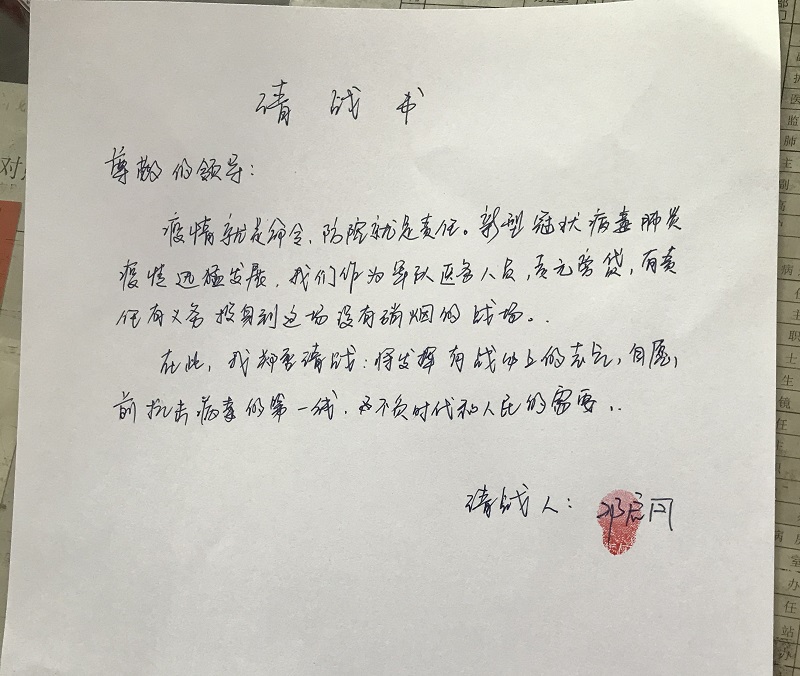 请战书
尊敬的领导：
疫情就是命令、防控就是责任。新型冠状病毒肺炎
疫情迅猛发展，我们作为军队医务人员，责无旁贷，有责
任有义务投身到这场没有硝烟的战场。
在此，我郑重请战：将发挥有战必上的志气，自愿
前抗击病毒的第一线，必不负时代和人民的需要。
请战人：邓启